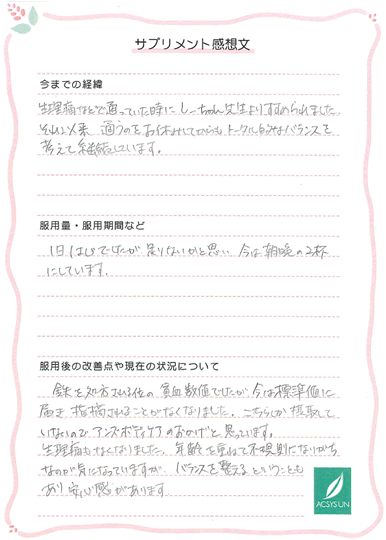 サプリメント感想文
今までの経緯
生理痛などで通っていた時にしーちゃん先生よりすすめられました。
それ以来 通うのをお休みしてからもトータル的なバランスを
考えて継続しています。
服用量・服用期間など
1日1杯でしたが足りないかと思い 今は朝晩の2杯
にしています。
服用後の改善点や現在の状況について
鉄を処方される位の貧血数値でしたが、今は標準値に
届き 指摘されることがなくなりました。こちらしか摂取して
いないので アンズ・ボディケアのおかげと思っています。
生理痛もなくなりました。年齢を重ねて不規則になりがち
なのが気になっていますが、バランスを整えるということも
あり 安心感があります
ACSYSUN